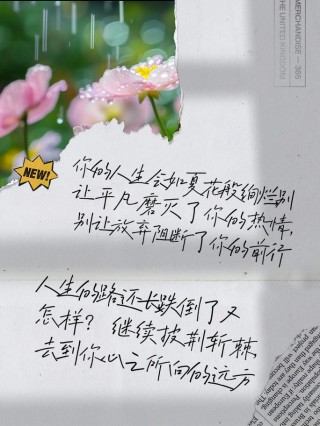 MERCHANDISE — 365
THE UNITED KINGDOM
NEW!
你的人生会如夏花般绚烂别
让平凡磨灭了你的热情,
别让放弃阻断了你的前行
人生的路还长跌倒了又
怎样? 继续披荆斩棘
去到你心之所向的远方